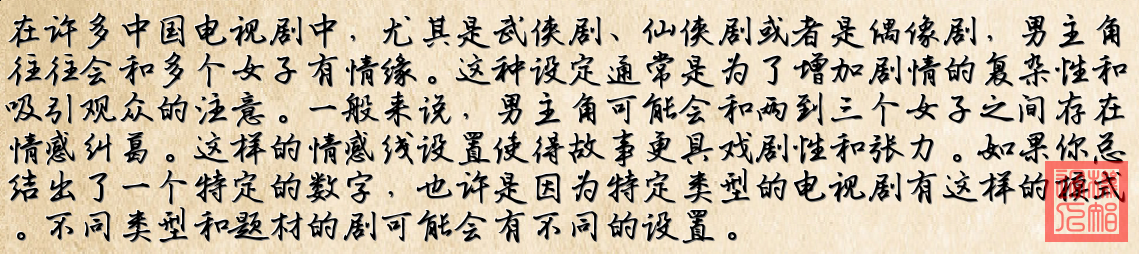 在许多中国电视剧中，尤其是武侠剧、仙侠剧或者是偶像剧，男主角
往往会和多个女子有情缘。这种设定通常是为了增加剧情的复杂性和
吸引观众的注意。一般来说，男主角可能会和两到三个女子之间存在
情感纠葛。这样的情感线设置使得故事更具戏剧性和张力。如果你总
结出了一个特定的数字，也许是因为特定类型的电视剧有这样的模式
。不同类型和题材的剧可能会有不同的设置。